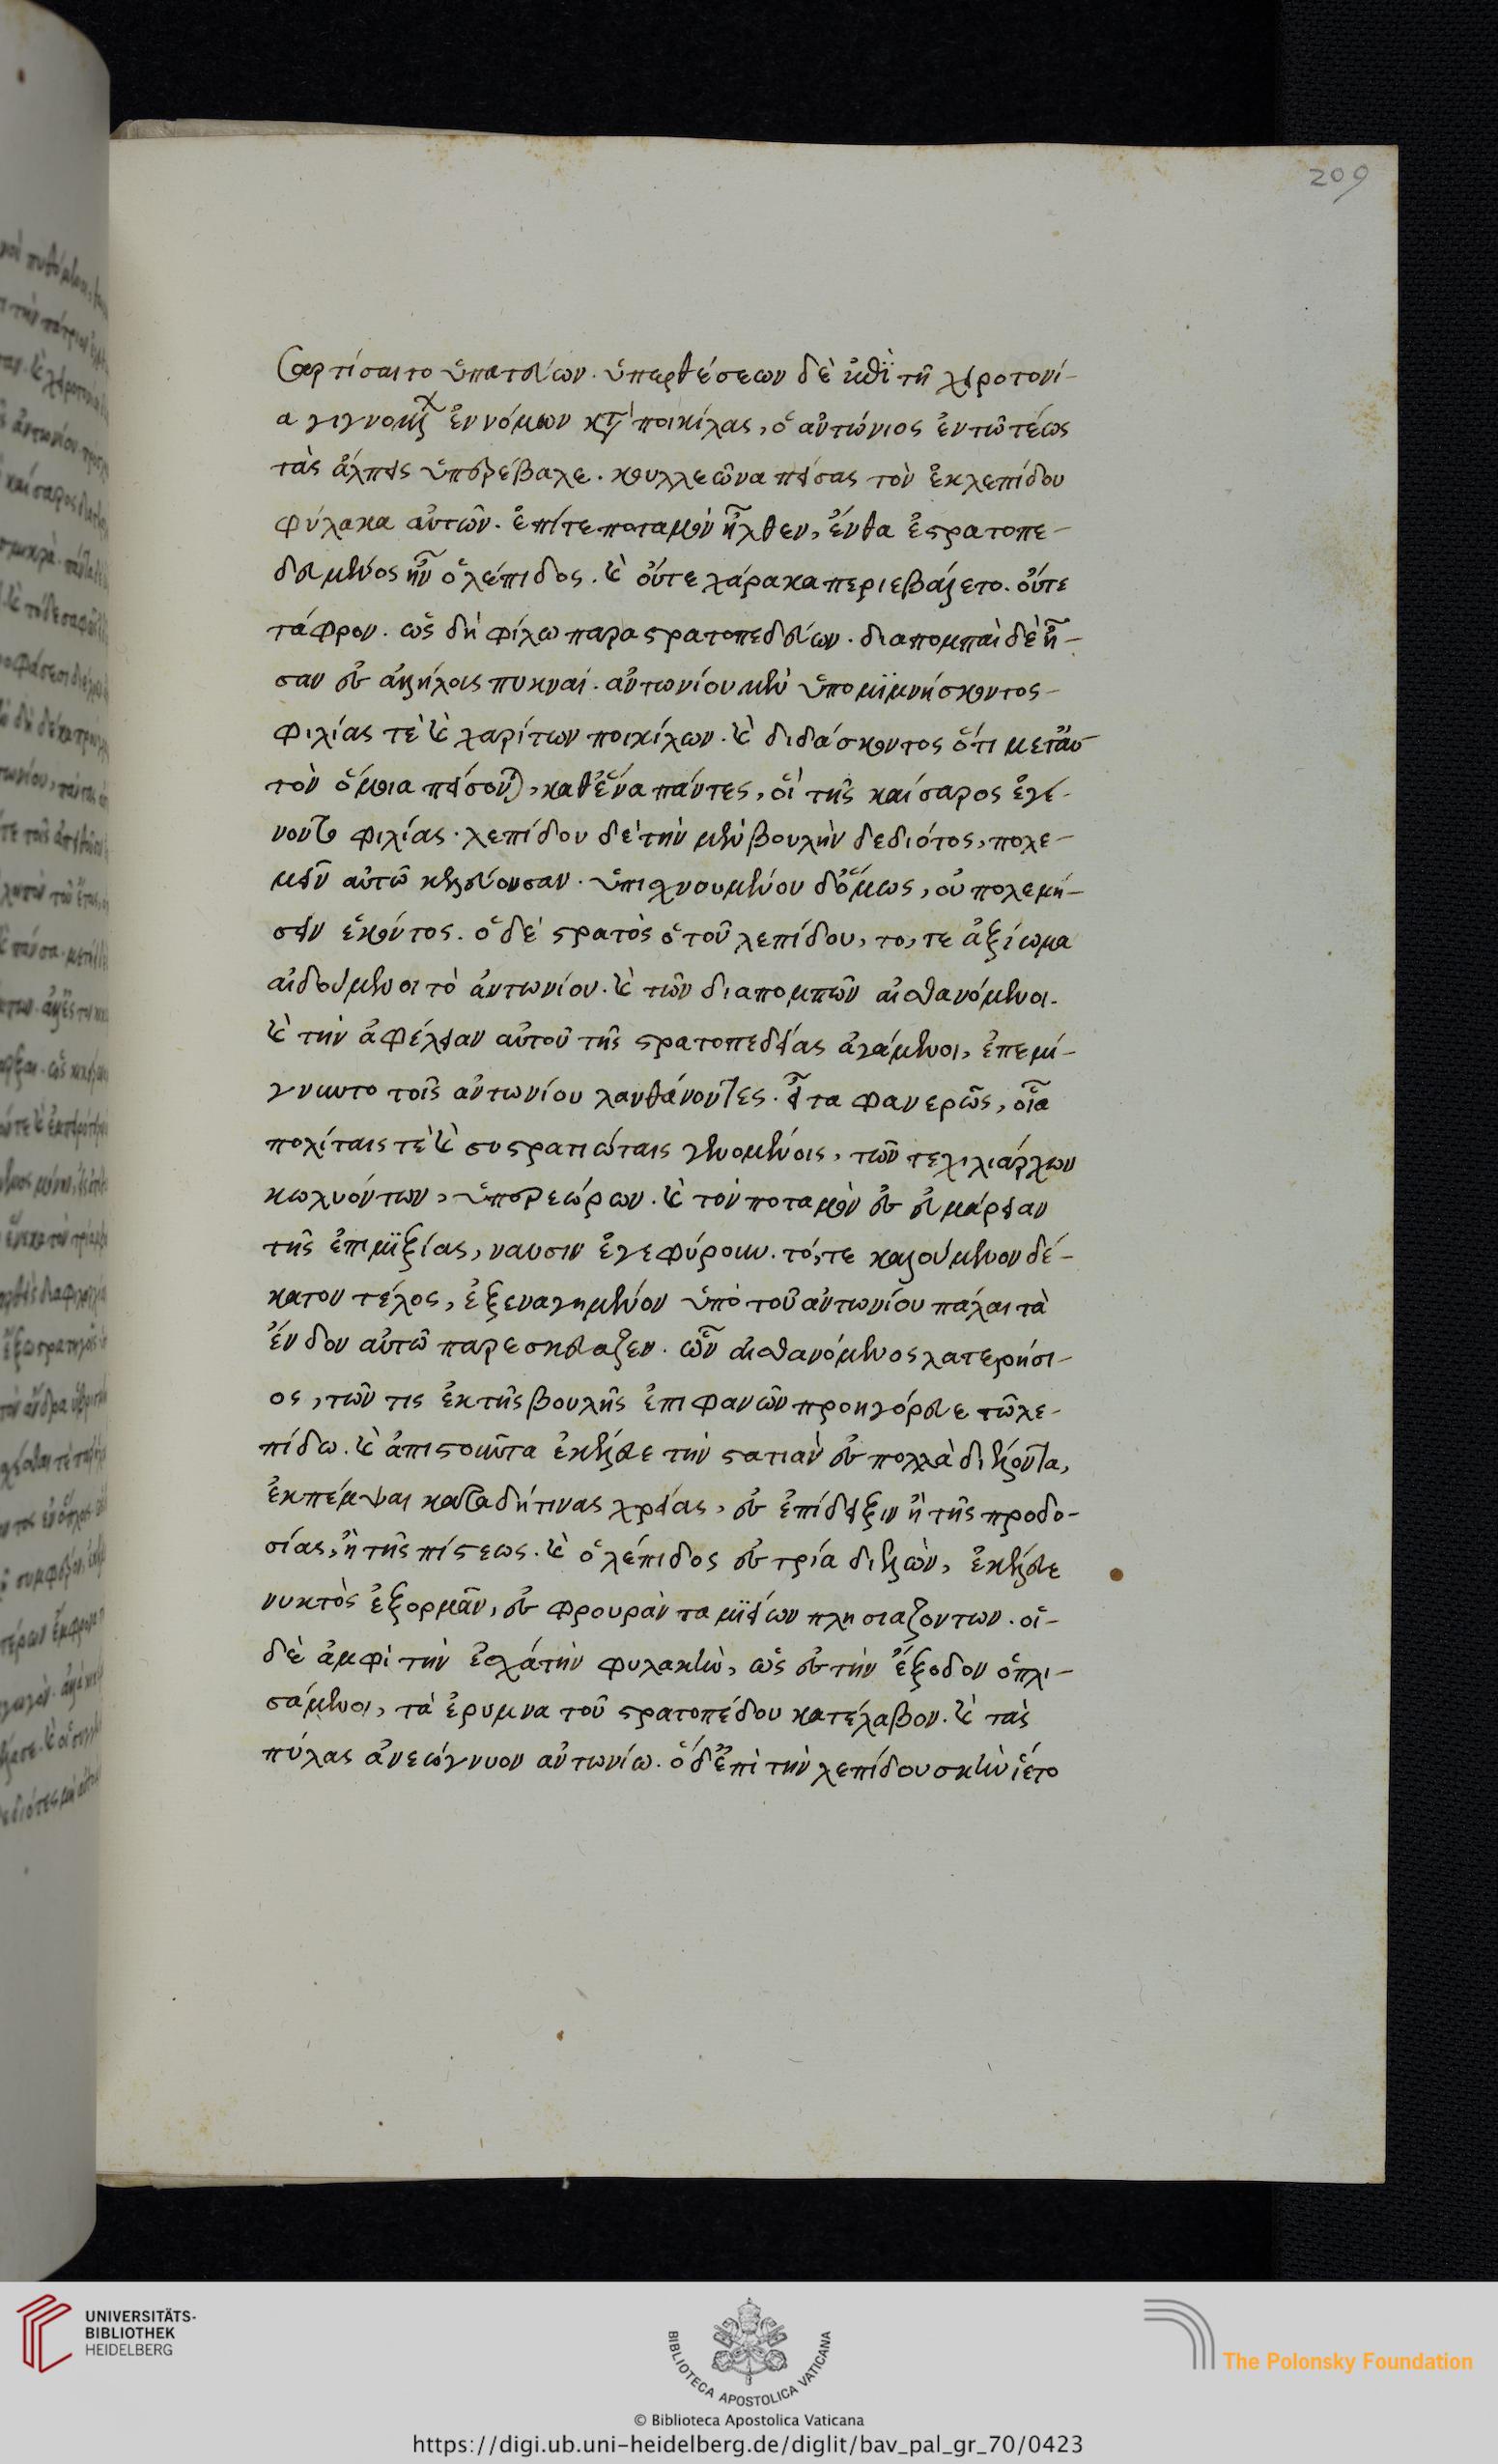 209
αρτίσαιτο ὑπατεύων. ὑπερθέσεων δὲ ἐπὶ τῆ χειροτονί-
α γιγνομένων ἐννόμων κατὰ ποικίλας, ὁ ἀντώνιος ἐν τῶ τέως
τὰς ἄλπεις ὑπερέβαλε. κουλλεῶνα πείσας τὸν ἐκ λεπίδου
φύλακα αὐτῶν. ἐπί τε ποταμὸν ἦλθεν, ἔνθα ἐστρατοπε-
δευμένος ἦν ὁ λέπιδος. καὶ οὔτε χάρακα περιεβάλετο. οὔτε
τάφρον. ὡς δὴ φίλω παραστρατοπεδεύων. διαπομπαὶ δὲ ἦ-
σαν ἐς ἀλλήλους πυκναί. ἀντωνίου μὲν ὑπομιμνήσκοντος
φιλίας τὲ καὶ χαρίτων ποικίλων. καὶ διδάσκοντος ὅτι μετ' αὐ-
τὸν ὅμοια πείσονται, καθ' ἕνα πάντες, οἱ τῆς καίσαρος ἐγέ-
νοντο φιλίας. λεπίδου δὲ τὴν μὲν βουλὴν δεδιότος, πολε-
μεῖν αὐτῶ κελεύουσαν. ὑπισχνουμένου δ' ὅμως, οὐ πολεμή-
σειν ἑκόντος. ὁ δὲ στρατὸς ὁ τοῦ λεπίδου, τό, τε ἀξίωμα
αἰδούμενοι τὸ ἀντωνίου. καὶ τῶν διαπομπῶν αἰσθανόμενοι.
καὶ τὴν ἀφέλειαν αὐτοῦ τῆς στρατοπεδείας ἀγάμενοι, ἐπεμί-
γνυντο τοῖς ἀντωνίου λανθάνοντες. εἶτα φανερῶς, οἷα
πολίταις τὲ καὶ συστρατιώταις γενομένοις, τῶν τε χιλιάρχων
κωλυόντων, ὑπερεώρων. καὶ τὸν ποταμὸν ἐς εὐμάρειαν
τῆς ἐπιμιξίας, ναυσὶν ἐγεφύρουν. τό, τε καλούμενον δέ-
κατον τέλος, ἐξεναγημένον ὑπὸ τοῦ ἀντωνίου πάλαι τὰ
ἔνδον αὐτῶ παρεσκεύαζεν. ὧν αἰσθανόμενος λατερήσι-
ος, τῶν τις ἐκ τῆς βουλῆς ἐπιφανῶν προηγόρευε τῶ λε-
πίδω. καὶ ἀπιστοῦντα ἐκέλευε τὴν στρατιὰν ἐς πολλὰ διελόντα,
ἐκπέμψαι κατὰ δή τινας χρείας, ἐς ἐπίδειξιν ἢ τῆς προδο-
σίας, ἢ τῆς πίστεως. καὶ ὁ λέπιδος ἐς τρία διελὼν, ἐκέλευε
νυκτὸς ἐξορμᾶν, ἐς φρουρὰν ταμιείων πλησιαζόντων. οἱ
δὲ ἀμφὶ τὴν ἐσχάτην φυλακὴν, ὡς ἐς τὴν ἔξοδον ὁπλι-
σάμενοι, τὰ ἐρυμνὰ τοῦ στρατοπέδου κατέλαβον. καὶ τὰς
πύλας ἀνεώγνυον ἀντωνίω. ὁ δ' ἐπὶ τὴν λεπίδου σκηνὴν ἵετο
UNIVERSITÄTS-
BIBLIOTHEK
HEIDELBERG
BIBLIOTECA APOSTOLICA VATICANA
The Polonsky Foundation
© Biblioteca Apostolica Vaticana
https://digi.ub.uni-heidelberg.de/diglit/bav_pal_gr_70/0423